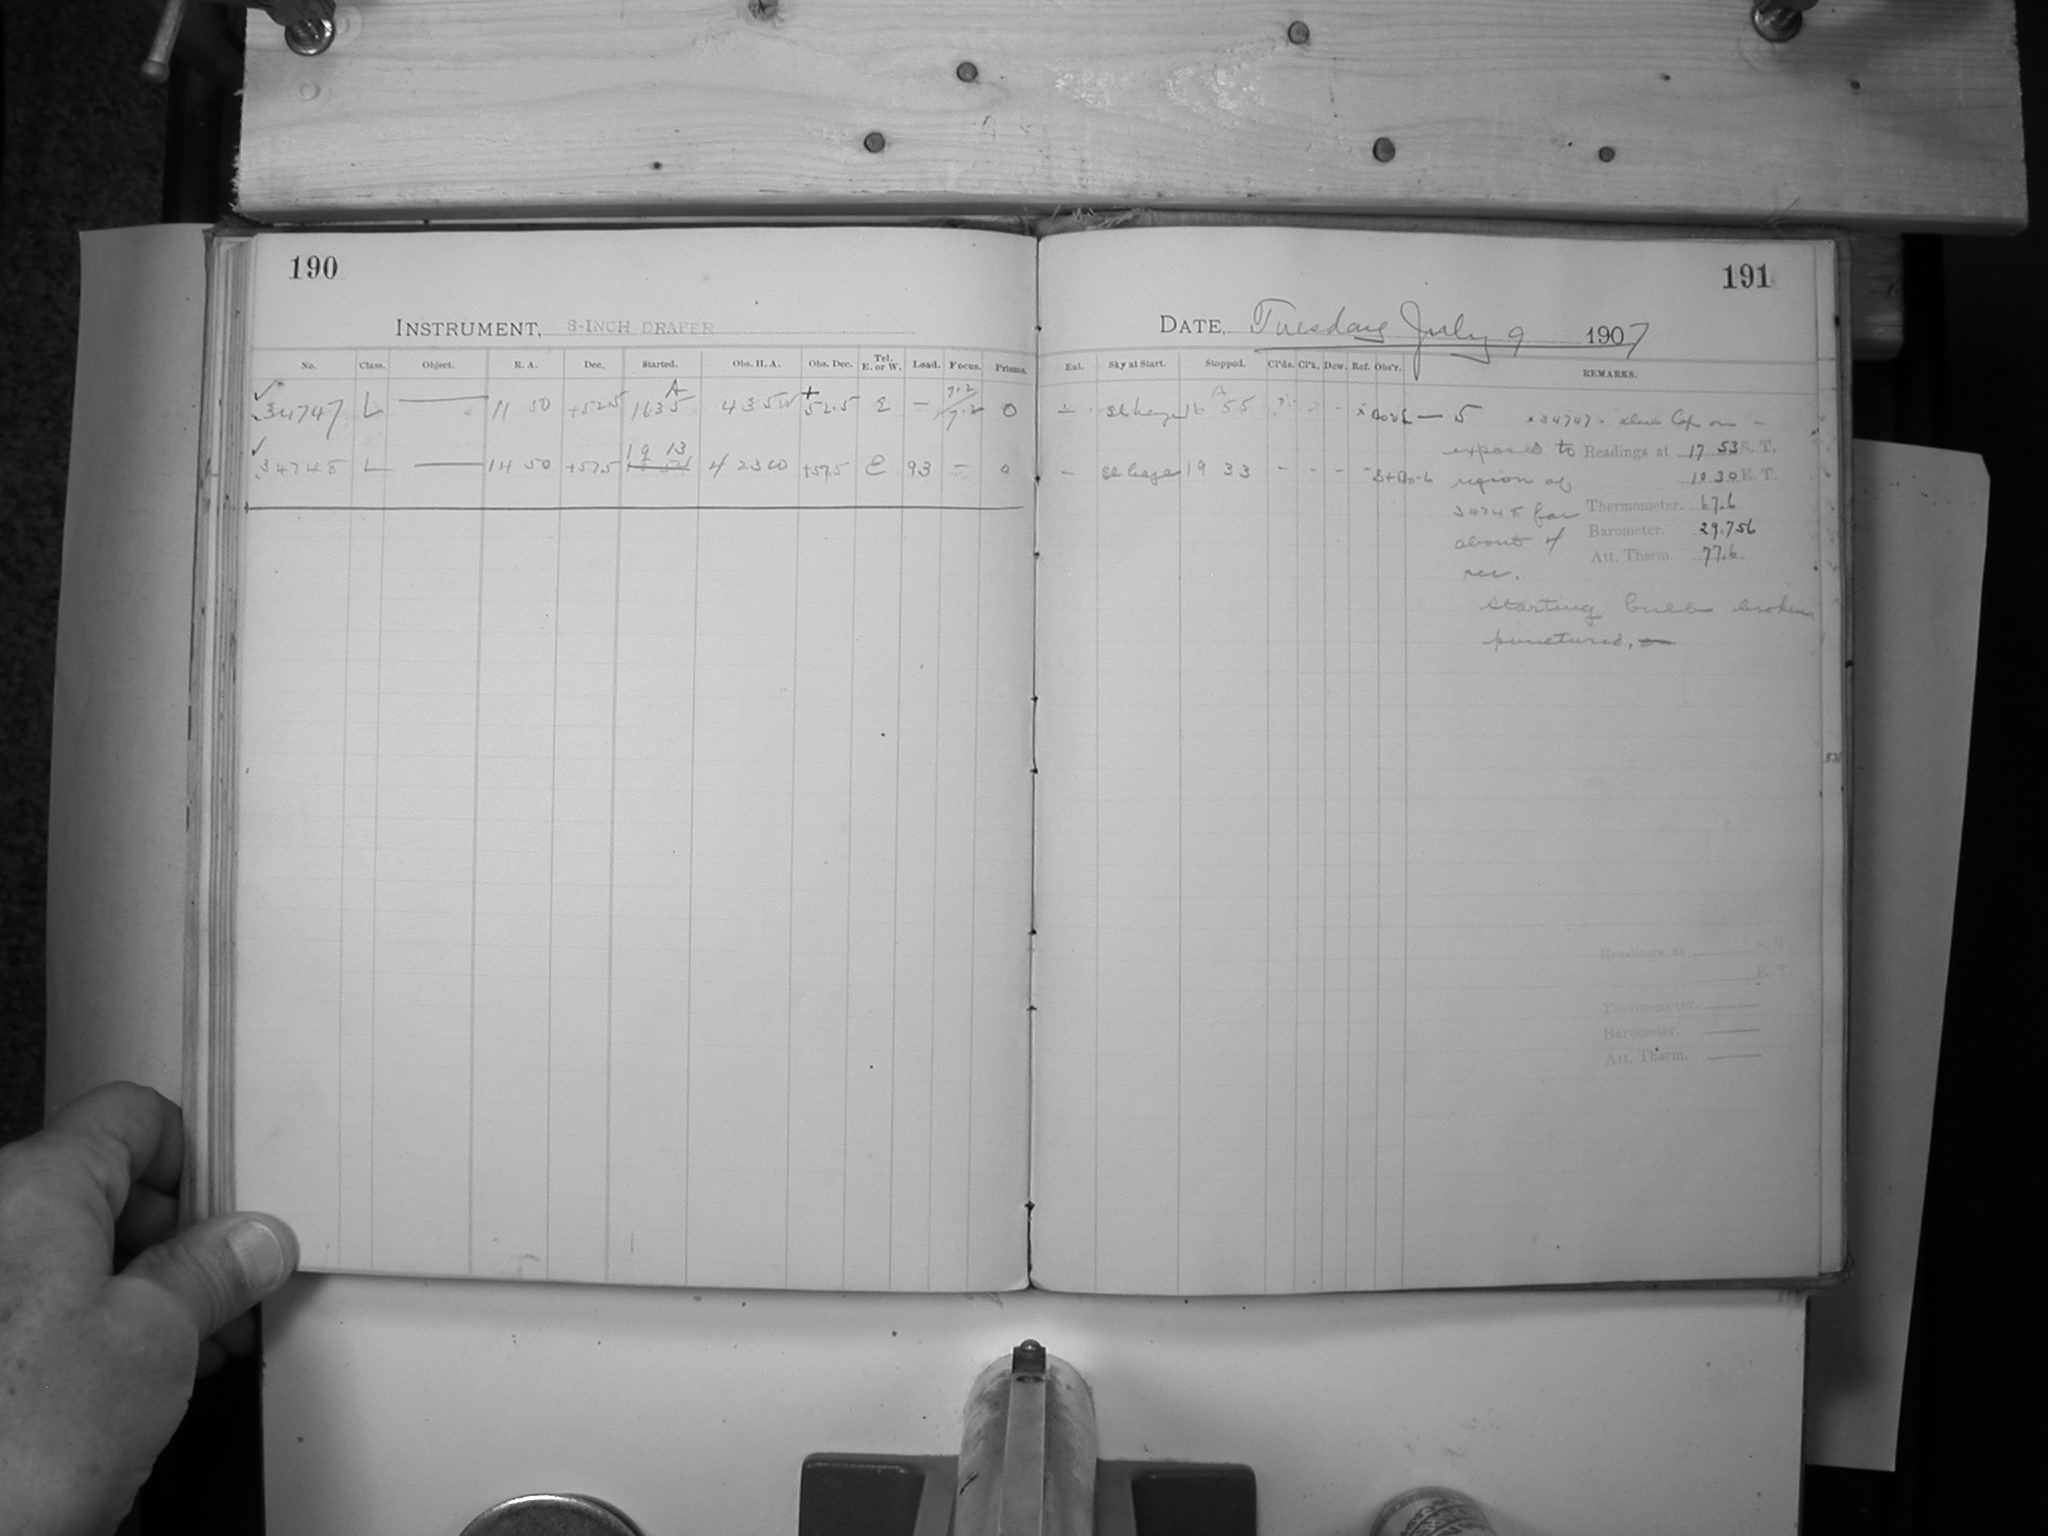 190
INSTRUMENT, 8-INCH DRAPER
No. Class. Object. R. A. Dec. Started. Obs. H. A. Obs. Dec. Tel. E. or W. Load. Focus. Prisms.
A 9.2
34747 L — 11 50 +52.5 1635 4 35 W +52.5 E — 9.2 0
19 13
34748 L — 14 50 +57.5 4 23 +57.5 E 93 – 0
191
DATE, Tuesday July 9 1907
Eal. Sky at Start. Stopped. Cl'ds. Cl'k. Dew. Ref. Obs'r. REMARKS.
A
sl haze 16 55 — 5 x 34747 on –
– sl haze 19 33 – – –
exposed to
region of
34748 for
about 4
sec.
Readings at 17 53 S. T.
10 30 E. T.
Thermometer. 67.6
Barometer. 29.756
Att. Therm. 77.6
Starting bulb broken
punctured,
Readings at S. T.
E. T.
Thermometer.
Barometer.
Att. Therm.